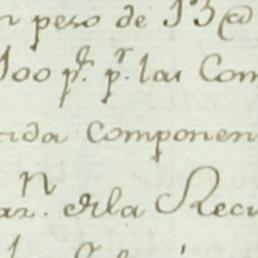 n peso de 13@
100 p.s p.r las Com
rida Componen
n
ar. dela Recu